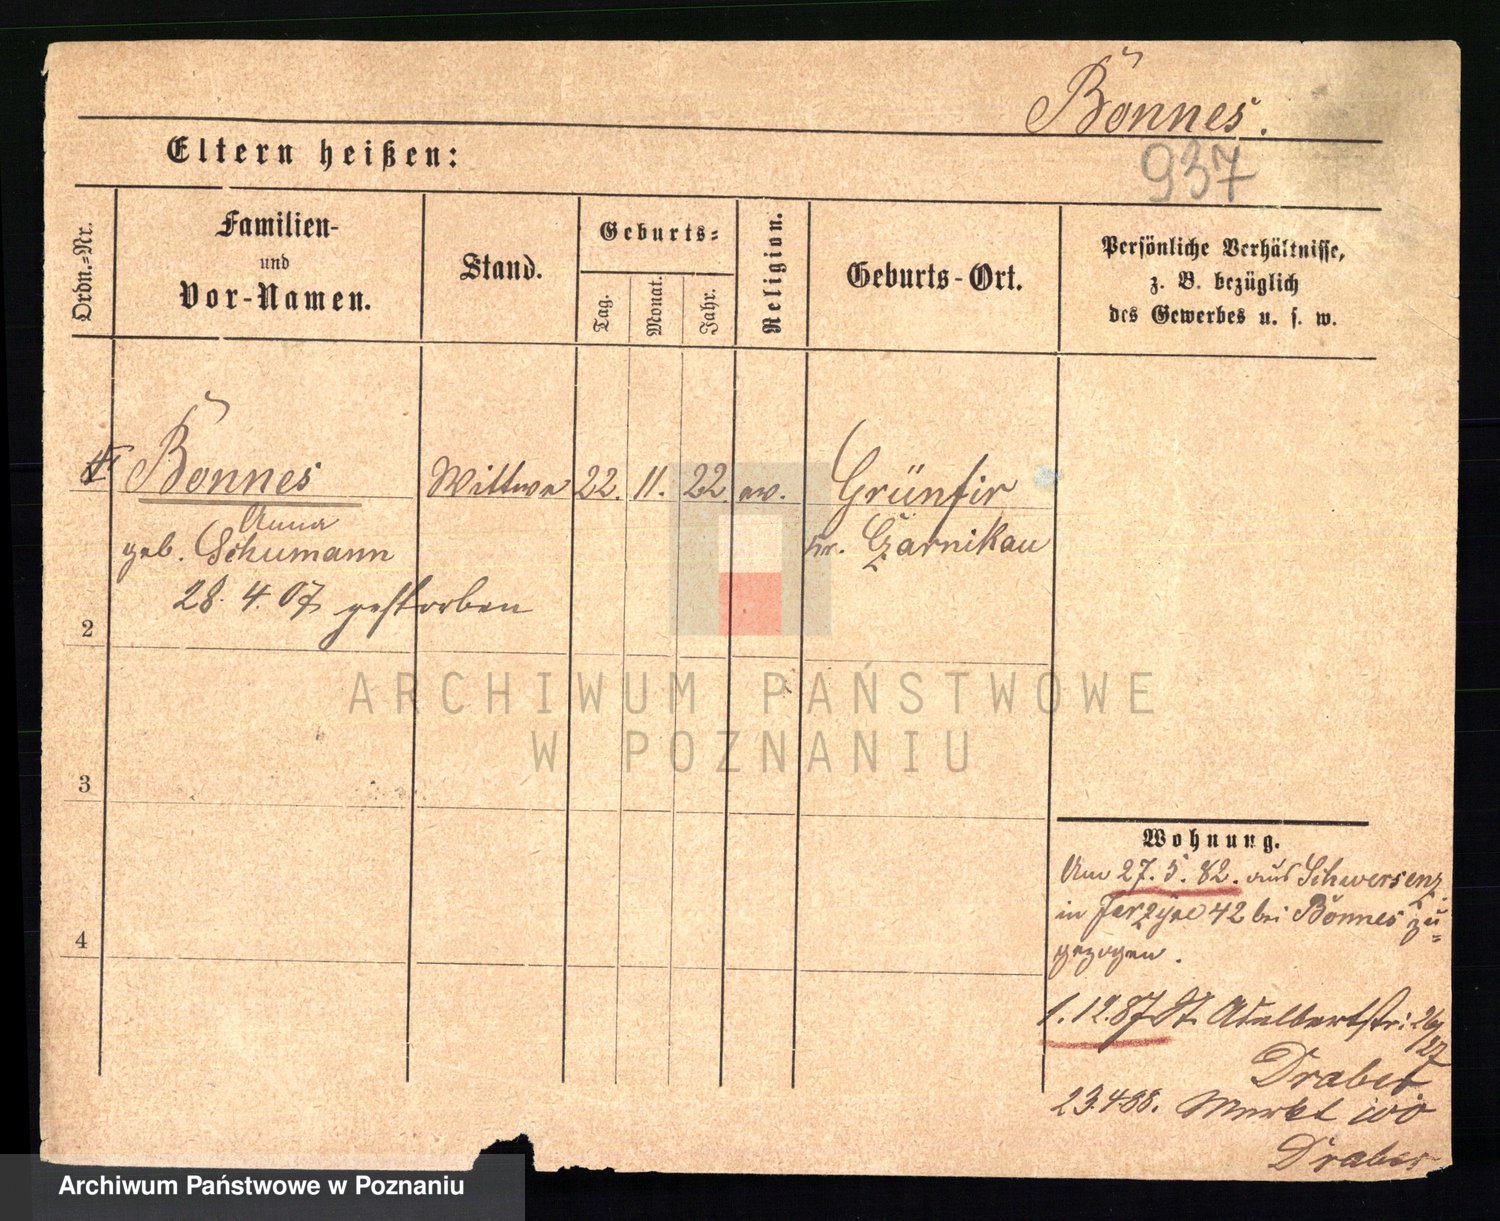 Bönnes.
937
Eltern heißen:
Ordn.-Nr.
Familien-
und
Vor-Namen.
Stand.
Geburts-
Tag.
Monat.
Jahr.
Religion.
Geburts-Ort.
Persönliche Verhältnisse,
z. B. bezüglich
des Gewerbes u. s. w.
Bönnes Wittwe 22. 11. 22 ev. Grünfir
Anna
geb. Schumann Kr. Czarnikau
28. 4. 07 gestorben
2
3
4
ARCHIWUM PAŃSTWOWE
W POZNANIU
Wohnung.
Am 27. 5. 82. aus Schwersenz
in Jerzyce 42 bei Bönnes zu-
gezogen.
1. 12. 87 St. Adalbertstr. 26/27
Draber
23.4.88. Markt 100
Draber
Archiwum Państwowe w Poznaniu